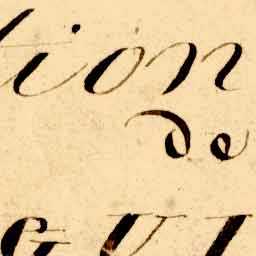 tion
de
GUI